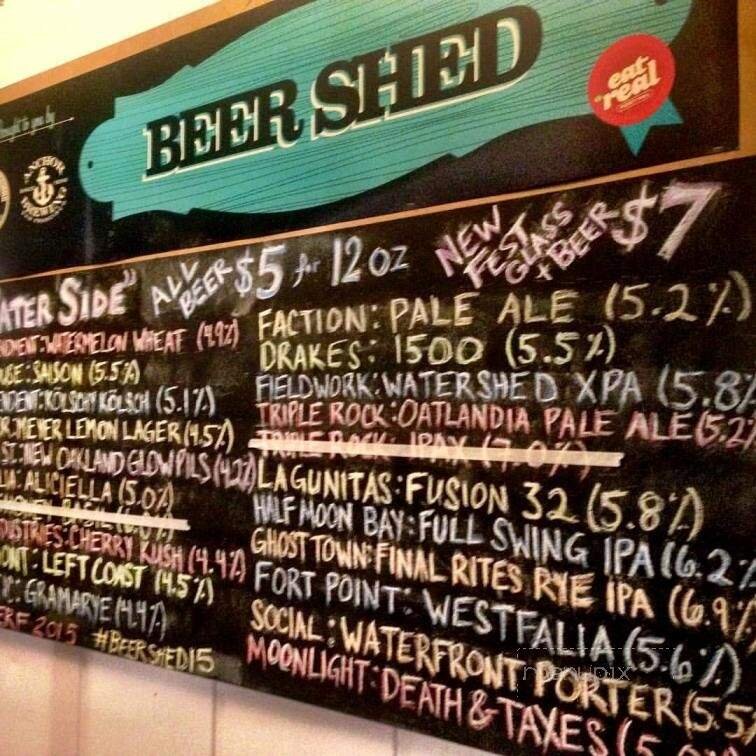 Brought to you by
BEER SHED
eat real
ANCHOR
BREWING
"WATER SIDE"
ALL BEER $5 for 12 OZ
NEW FEST GLASS + BEER $7
WATERMELON WHEAT (4.9%)
SAISON (5.5%)
KÖLSCHY KÖLSCH (5.1%)
MEYER LEMON LAGER (4.5%)
ST: NEW OAKLAND GLOW PILS (4.2%)
ALICIELLA (5.0%)
BASIL (6.0%)
CHERRY KUSH (4.4%)
LEFT COAST (4.5%)
GRAMARYE (4.4%)
ERF 2015 #BEERSHED15
FACTION: PALE ALE (5.2%)
DRAKES: 1500 (5.5%)
FIELDWORK: WATERSHED XPA (5.8%
TRIPLE ROCK: OATLANDIA PALE ALE (5.2%
TRIPLE ROCK: IPAX (7.0%)
LAGUNITAS: FUSION 32 (5.8%)
HALF MOON BAY: FULL SWING IPA (6.2%
GHOST TOWN: FINAL RITES RYE IPA (6.9%
FORT POINT: WESTFALIA (5.6%)
SOCIAL: WATERFRONT PORTER (5.5
MOONLIGHT: DEATH & TAXES (5.
menupix